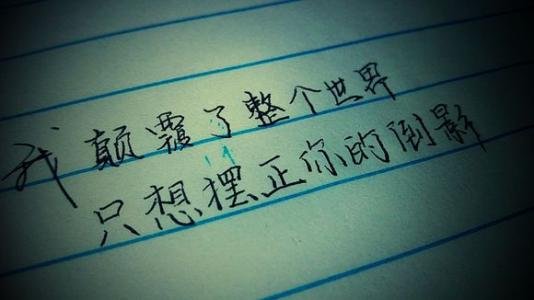 我颠覆了整个世界
只想摆正你的倒影